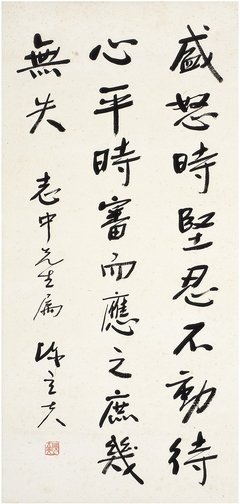 盛怒時堅忍不動待
心平時審而應之庶幾
無失
志中先生屬 陳立夫